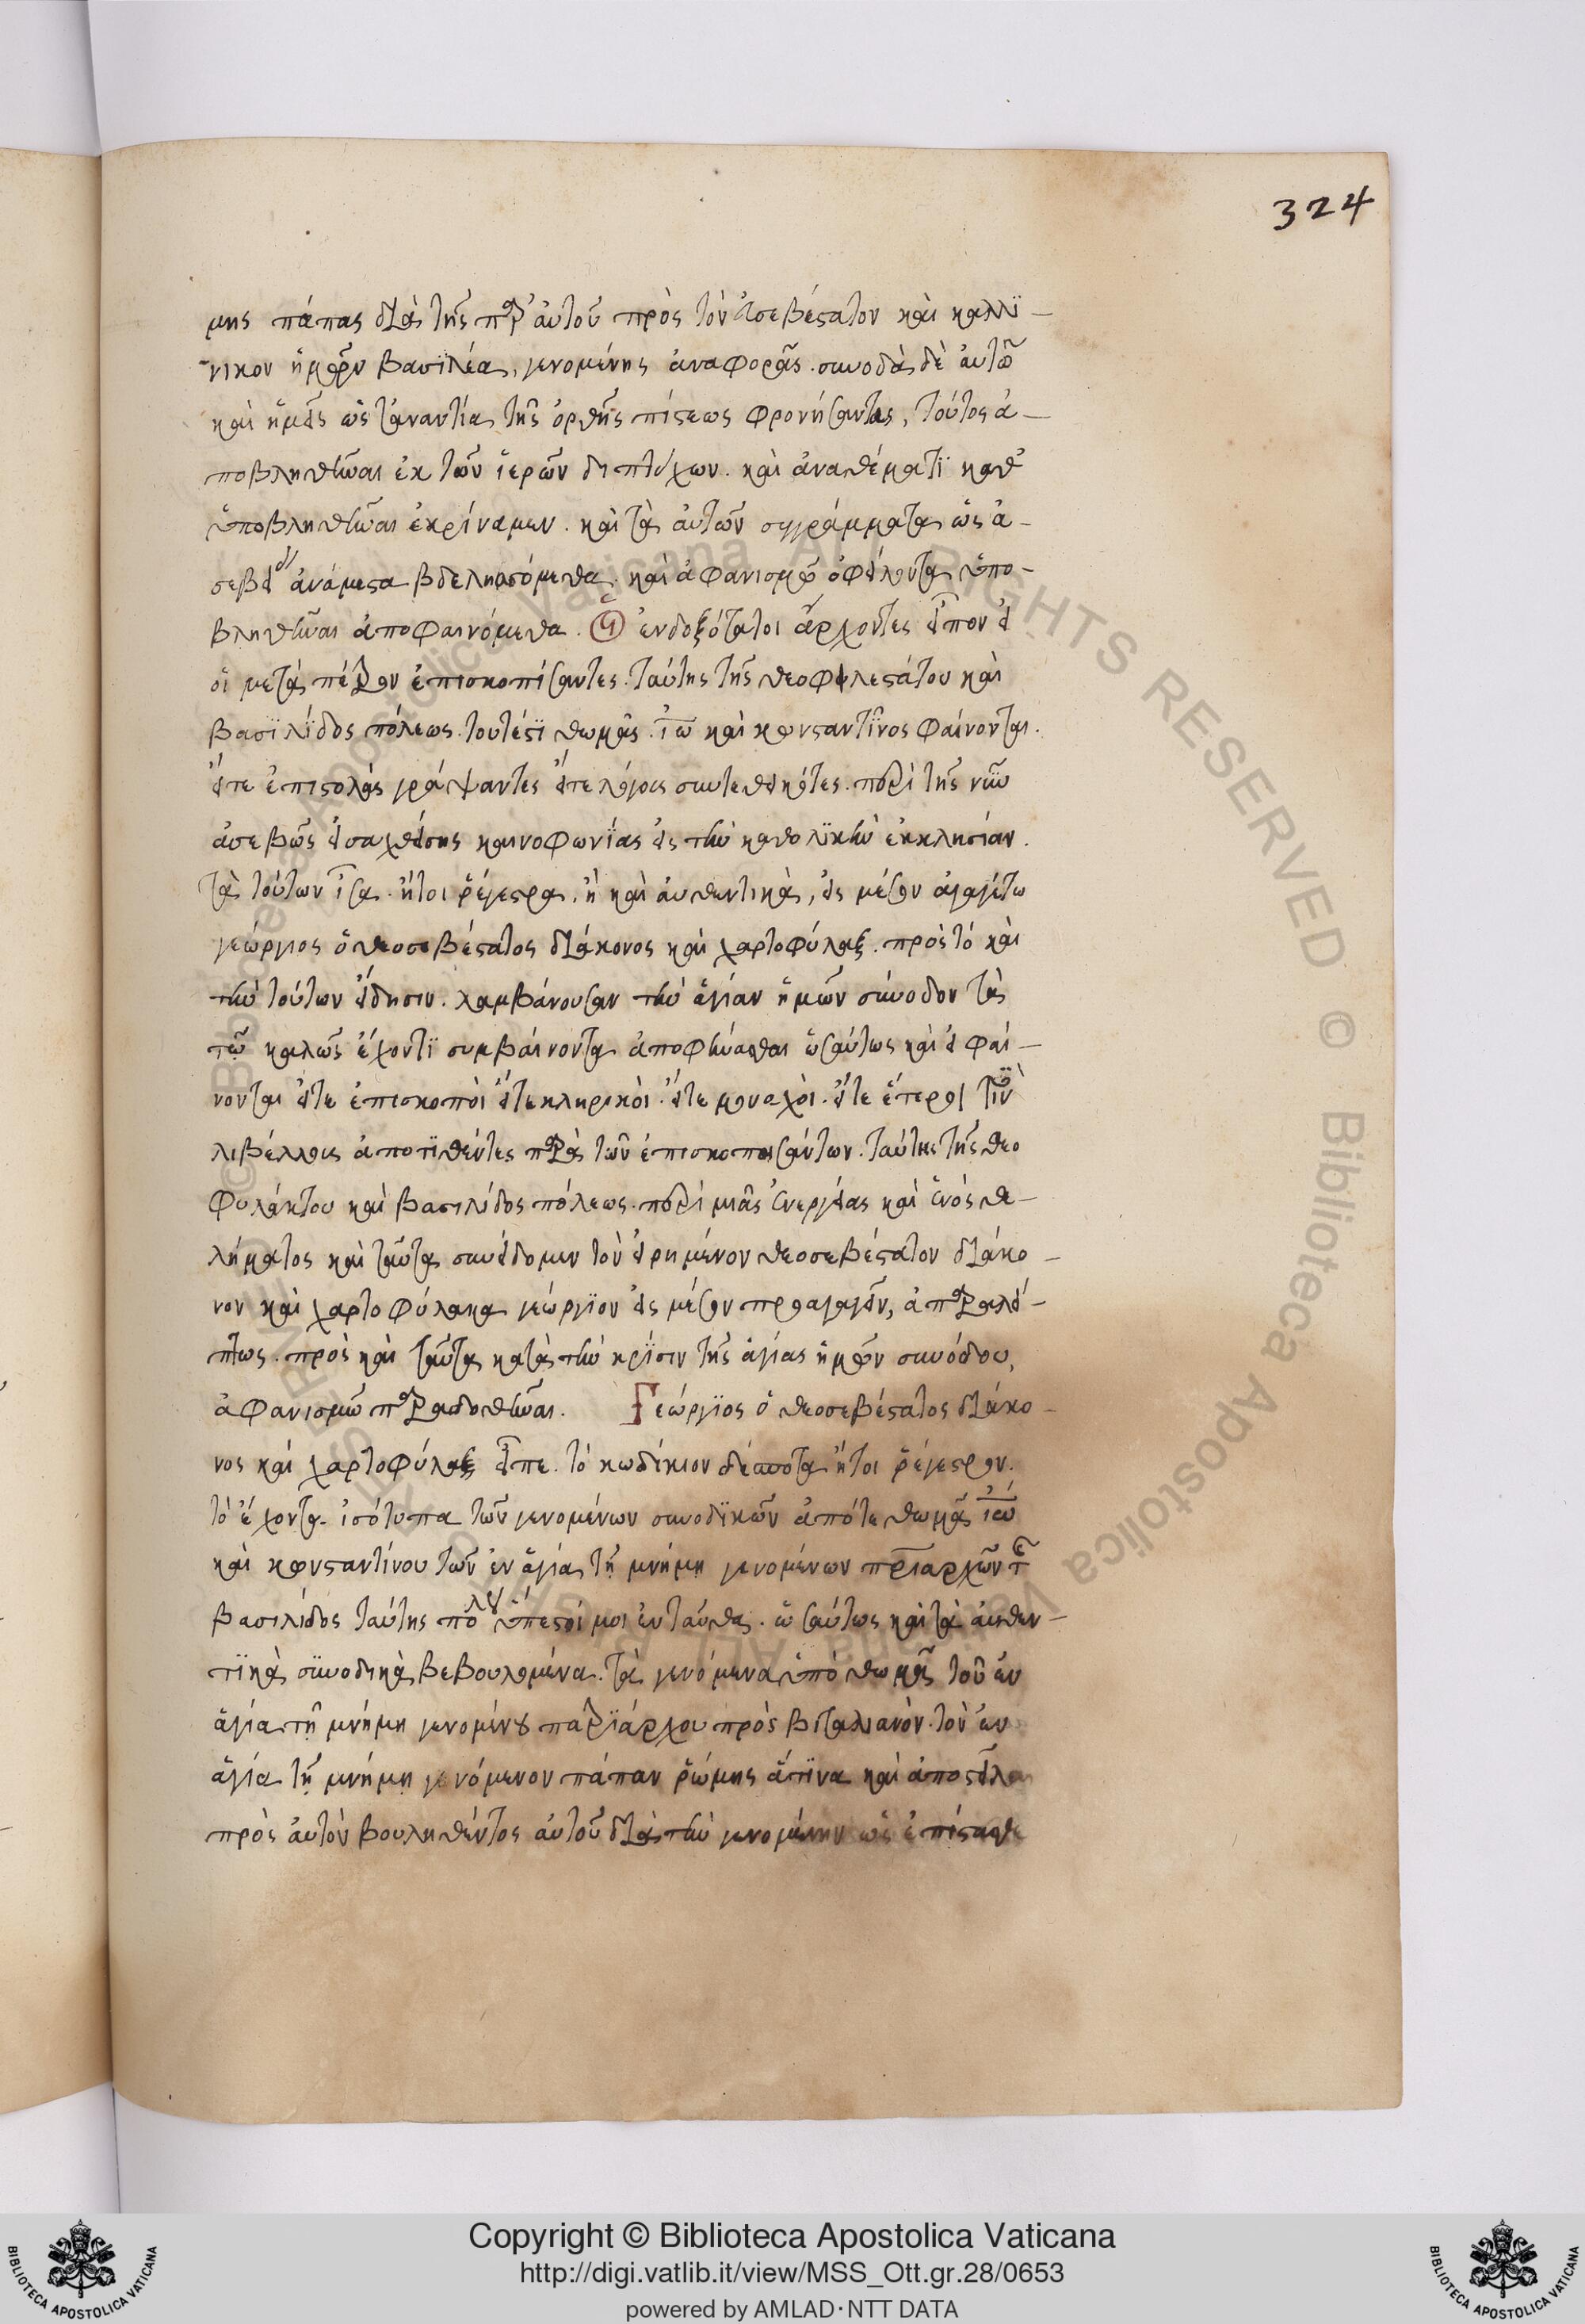 324
μης πάπας διὰ τῆς παρ' αὐτοῦ πρὸς τὸν εὐσεβέστατον καὶ καλλί-
νικον ἡμῶν βασιλέα, γενομένης ἀναφορᾶς. συνοδὰ δὲ αὐτῶ
καὶ ἡμεῖς ὡς τἀναντία τῆς ὀρθῆς πίστεως φρονήσαντας, τούτος ἀ-
ποβληθῆναι ἐκ τῶν ἱερῶν διπτύχων. καὶ ἀναθέματι καθ
ὑποβληθῆναι ἐκρίναμεν. καὶ τὰ αὐτῶν συγγράμματα ὡς ἀ-
σεβεί ἀνάμεστα βδελησσόμεθα. καὶ ἀφανισμῶ ὀφείλοντα ὑπο-
βληθῆναι ἀποφαινόμεθα. ἐνδοξότατοι ἄρχοντες εἶπον εἰ
οἱ μετὰ πέτρον ἐπισκοπίσαντες ταύτης τῆς θεοφιλεστάτου καὶ
βασιλίδος πόλεως. τουτέστι θωμᾶς. ἰω καὶ κωνσταντῖνος φαίνονται.
εἴτε ἐπιστολὰς γράψαντες εἴτε λόγοις συντεθεικότες. περὶ τῆς νῦν
ἀσεβῶς εἰσαχθείσης καινοφωνίας εἰς τὴν καθολικὴν ἐκκλησίαν.
τὰ τούτων ἶσα. ἤτοι ῥέγεστρα. ἢ καὶ αὐθεντικὰ, εἰς μέσον ἀγαγέτω
γεώργιος ὁ θεοσεβέστατος διάκονος καὶ χαρτοφύλαξ. πρὸς τό καὶ
τὴν τούτων εἴδησιν. λαμβάνουσαν τὴν ἁγίαν ἡμῶν σύνοδον τὰ
τῶ καλῶς ἔχοντι συμβαίνοντα ἀποφήνασθαι ὡσαύτως καὶ εἰ φαί-
νονται εἴτε ἐπισκοποὶ εἴτε κληρικοὶ. εἴτε μοναχοὶ. εἴτε ἕτεροι τινὲς
λιβέλλους ἀποτιθέντες παρὰ τῶν ἐπισκοπησάντων. ταύτης τῆς θεο
φυλάκτου καὶ βασιλίδος πόλεως. περὶ μιᾶς ἐνεργείας καὶ ἑνὸς θε-
λήματος καὶ ταῦτα συνείδομεν τὸν εἰρημένον θεοσεβέστατον διάκο-
νον καὶ χαρτοφύλακα γεώργιον εἰς μέσον προαγαγεῖν, ἀπαραλεί-
πτως. πρὸς καὶ ταῦτα κατὰ τὴν κρίσιν τῆς ἁγίας ἡμῶν συνόδου,
ἀφανισμῶ παραδοθῆναι. Γεώργιος ὁ θεοσεβέστατος διάκο-
νος καὶ χαρτοφύλαξ εἶπε. τὸ κωδίκιον δέσποτα ἤτοι ῥέγεστρον.
τὸ ἔχοντα ἰσότυπα τῶν γενομένων συνοδικῶν ἀπότε θωμᾶ ἰω
καὶ κωνσταντίνου τῶν ἐν ἁγία τῇ μνήμη γενομένων πριαρχῶν τ
βασιλίδος ταύτης πόλου ὕπεστί μοι ἐνταῦθα. ὡσαύτως καὶ τὰ αὐθεν-
τικὰ συνοδικὰ βεβουλωμένα. τὰ γενόμενα ὑπὸ θωμᾶ τοῦ ἐν
ἁγία τῇ μνήμη γενομένου πατριάρχου πρὸς βιταλιανὸν. τὸν ἐν
ἁγία τῇ μνήμη γενόμενον πάπαν ῥώμης ἅτινα καὶ ἀποστεῖλαι
πρὸς αὐτὸν βουληθέντος αὐτοῦ διὰ τὴν γενομένην ὡς ἐπίστασθε
Copyright © Biblioteca Apostolica Vaticana
http://digi.vatlib.it/view/MSS_Ott.gr.28/0653
powered by AMLAD · NTT DATA